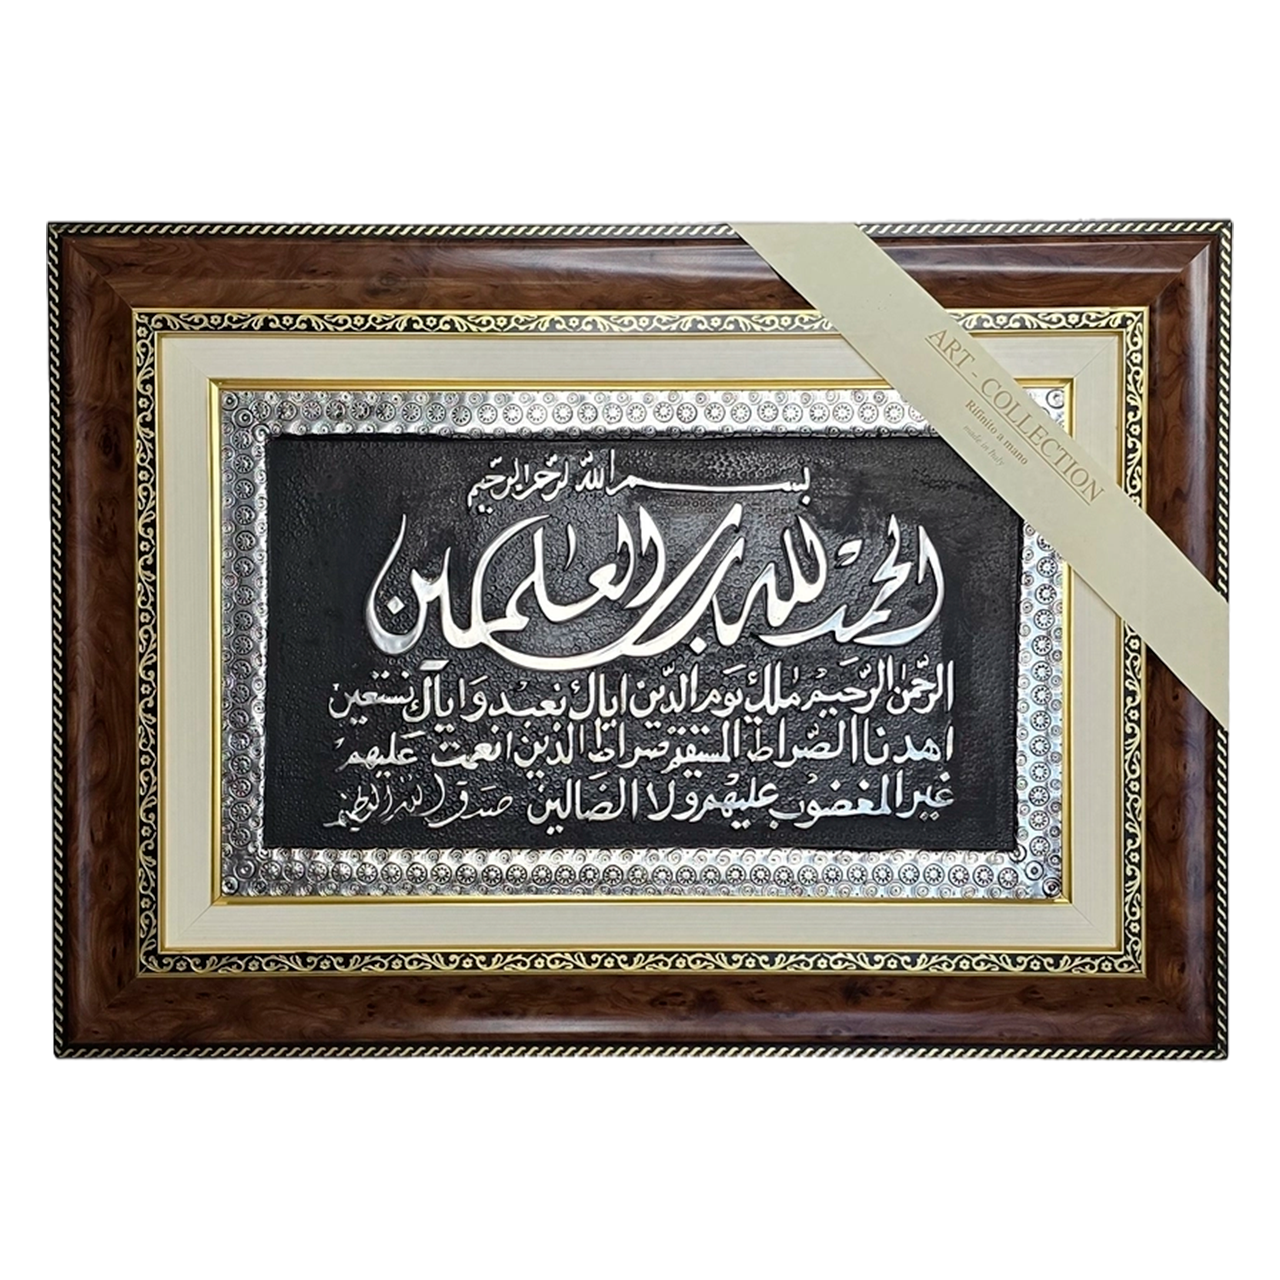 بسم الله الرحمن الرحيم
الحمد لله رب العلمين
الرحمن الرحيم ملك يوم الدين اياك نعبد و اياك نستعين
اهدنا الصراط المستقيم صراط الذين انعمت عليهم
غير المغضوب عليهم ولا الضالين صدق الله العظيم
ART - COLLECTION
Rifinito a mano
made in Italy